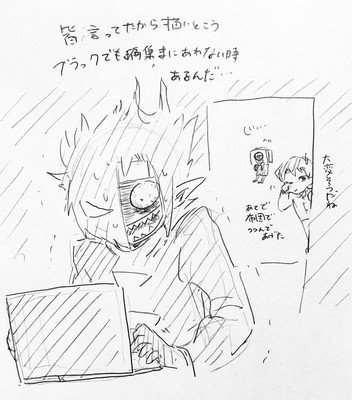 皆言ってたから描いとこう
ブラックでも編集まにあわない時
あるんだ…
じーー
大変そうだね
あとで
布団で
つつんで
あげた